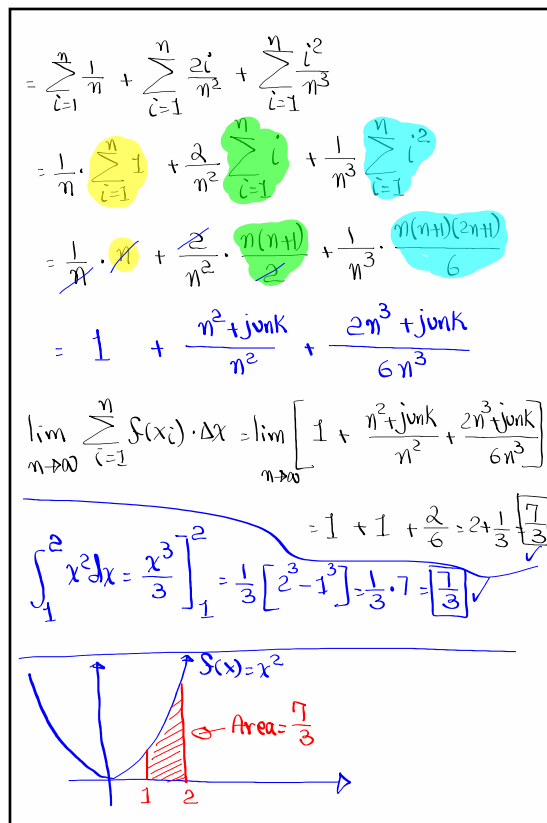 = \sum_{i=1}^{n} \frac{1}{n} + \sum_{i=1}^{n} \frac{2i}{n^2} + \sum_{i=1}^{n} \frac{i^2}{n^3}
= \frac{1}{n} \cdot \sum_{i=1}^{n} 1 + \frac{2}{n^2} \sum_{i=1}^{n} i + \frac{1}{n^3} \sum_{i=1}^{n} i^2
= \frac{1}{n} \cdot n + \frac{2}{n^2} \cdot \frac{n(n+1)}{2} + \frac{1}{n^3} \cdot \frac{n(n+1)(2n+1)}{6}
= 1 + \frac{n^2 + junk}{n^2} + \frac{2n^3 + junk}{6n^3}
\lim_{n \to \infty} \sum_{i=1}^{n} f(x_i) \cdot \Delta x = \lim_{n \to \infty} \left[ 1 + \frac{n^2 + junk}{n^2} + \frac{2n^3 + junk}{6n^3} \right]
= 1 + 1 + \frac{2}{6} = 2 + \frac{1}{3} = \boxed{\frac{7}{3}} ✓
\int_{1}^{2} x^2 dx = \left. \frac{x^3}{3} \right]_{1}^{2} = \frac{1}{3} [2^3 - 1^3] = \frac{1}{3} \cdot 7 = \boxed{\frac{7}{3}} ✓
f(x) = x^2
Area = \frac{7}{3}
1 2